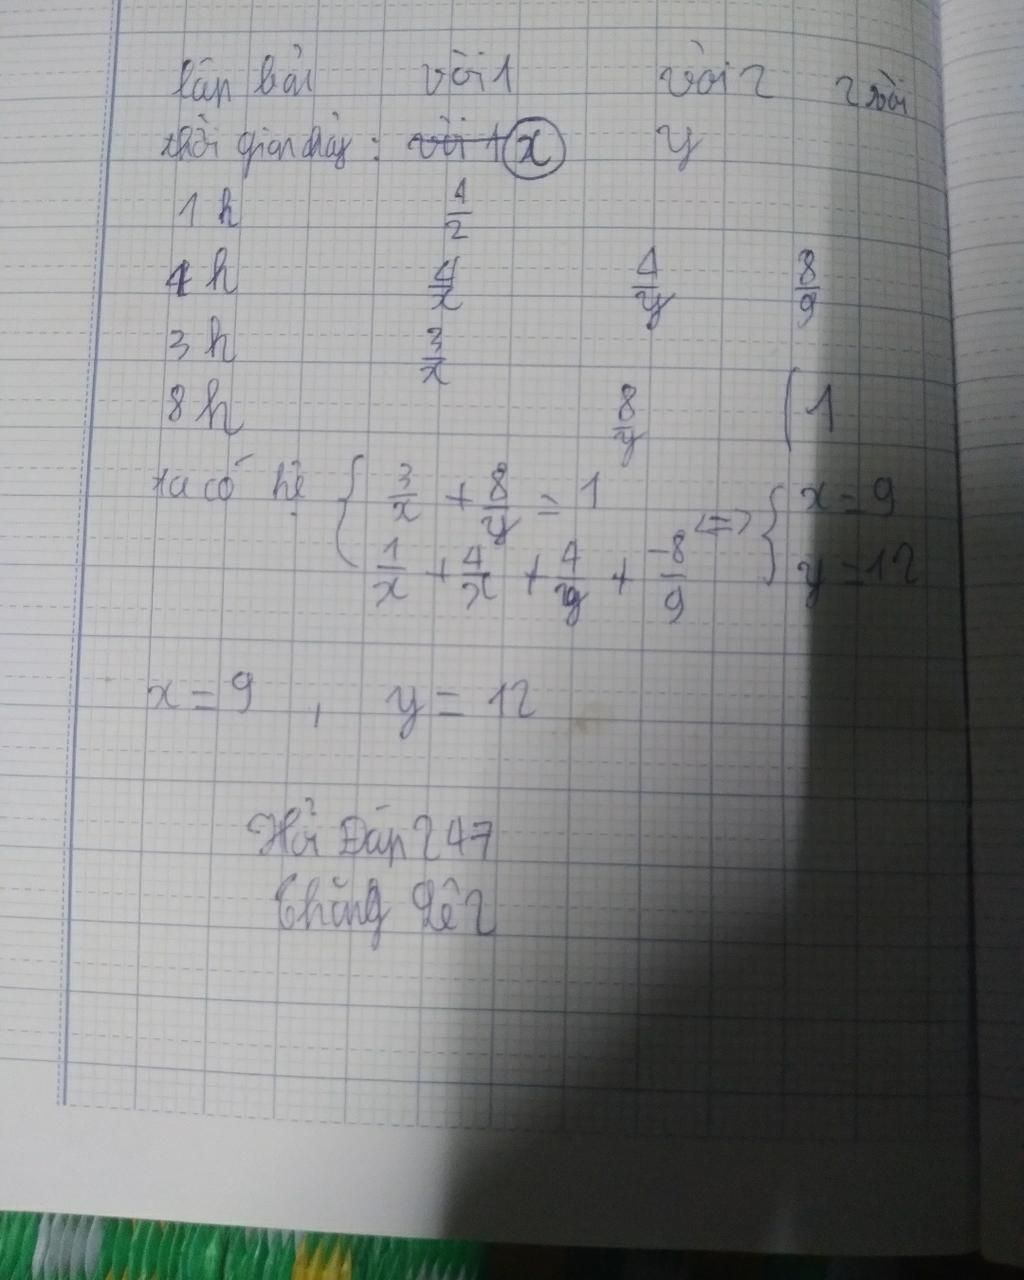 lập bải vòi 1 vòi 2 2 vòi
thời gian chảy : vòi 1 x y
1 h 1/2
4 h 4/x 4/y 8/9
3 h 3/x
8 h 8/y ( 1
ta có hệ { 3/x + 8/y = 1
1/x + 4/x + 4/y + -8/9 <=> { x = 9
y = 12
x = 9 , y = 12
Hỏi Đáp 247